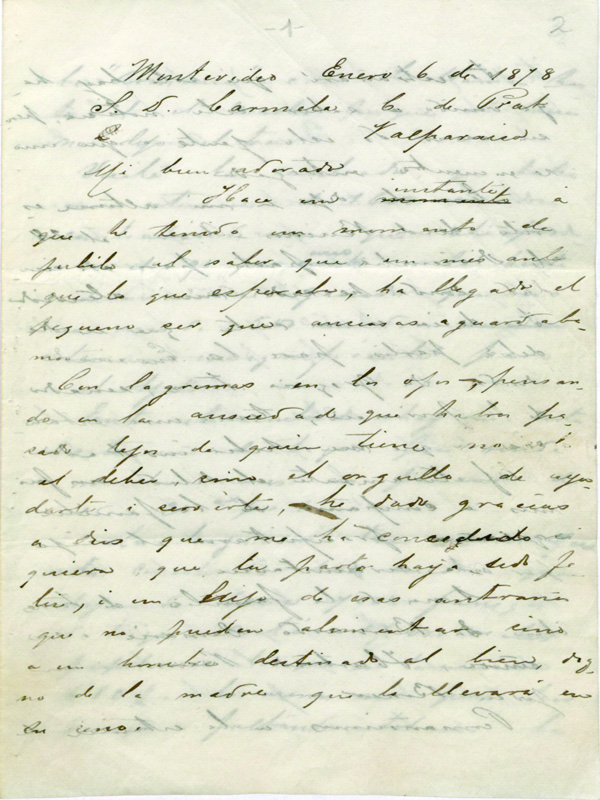 -1-
2
Montevideo Enero 6 de 1878
S. D. Carmela C. de Prat
Valparaiso
Mi bien adorado
Hace un momento instante
que he tenido un momento de
jubilo al saber que un mes ante
que lo que esperaba, ha llegado el
pequeno ser que ansiosas aguardaba-
mos
Con lagrimas en los ojos, pensan-
do en la ansiedad que habras pa-
sado lejos de quien tiene no
el deber, sino el orgullo de ayu-
darte i servirte, he dado gracias
a Dios que me ha concedido
quiera que tu parto haya sido fe
liz, i un hijo de esas entrañas
que no pueden alimentar sino
a un hombre destinado al bien, dig-
no de la madre que lo llevará en
su seno.